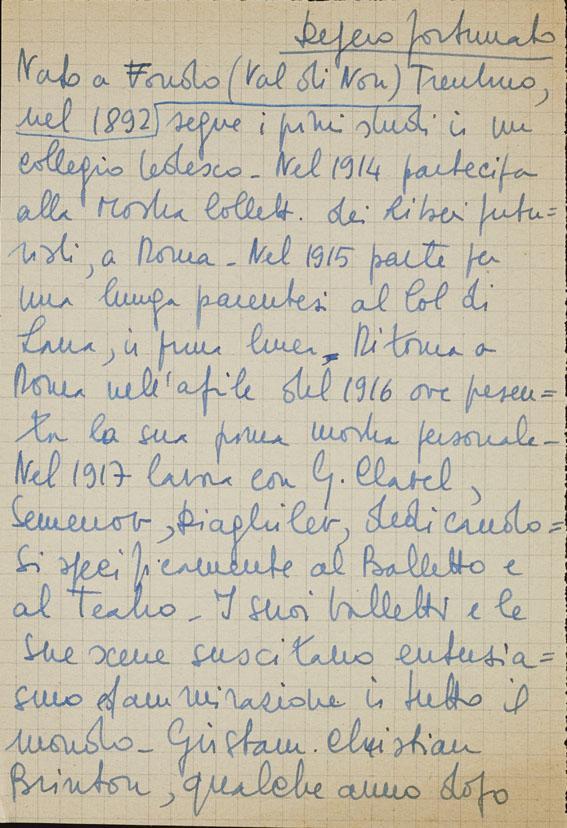 Depero Fortunato
Nato a Fondo (Val di Non) Trentino,
nel 1892 segue i primi studi in un
collegio tedesco - Nel 1914 partecipa
alla Mostra Collett. dei Liberi futu=
risti, a Roma - Nel 1915 parte per
una lunga parentesi al Col di
Lana, in prima linea, Ritorna a
Roma nell'aprile del 1916 ove presen=
ta la sua prima mostra personale -
Nel 1917 lavora con G. Clavel,
Semenov, Diaghilev, dedicando=
si specificamente al Balletto e
al Teatro - I suoi balletti e le
sue scene suscitano entusia=
smo ed ammirazione in tutto il
mondo - Christian
Brinton, qualche anno dopo